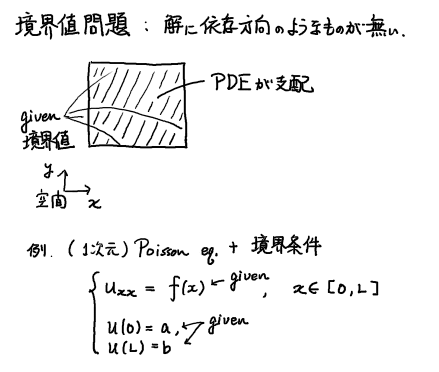 境界値問題 : 解に依存方向のようなものが無い.
PDEが支配
given
境界値
y
空間 x
例. (1次元) Poisson eq. + 境界条件
u_xx = f(x) ← given, x ∈ [0, L]
u(0) = a, ← given
u(L) = b ←